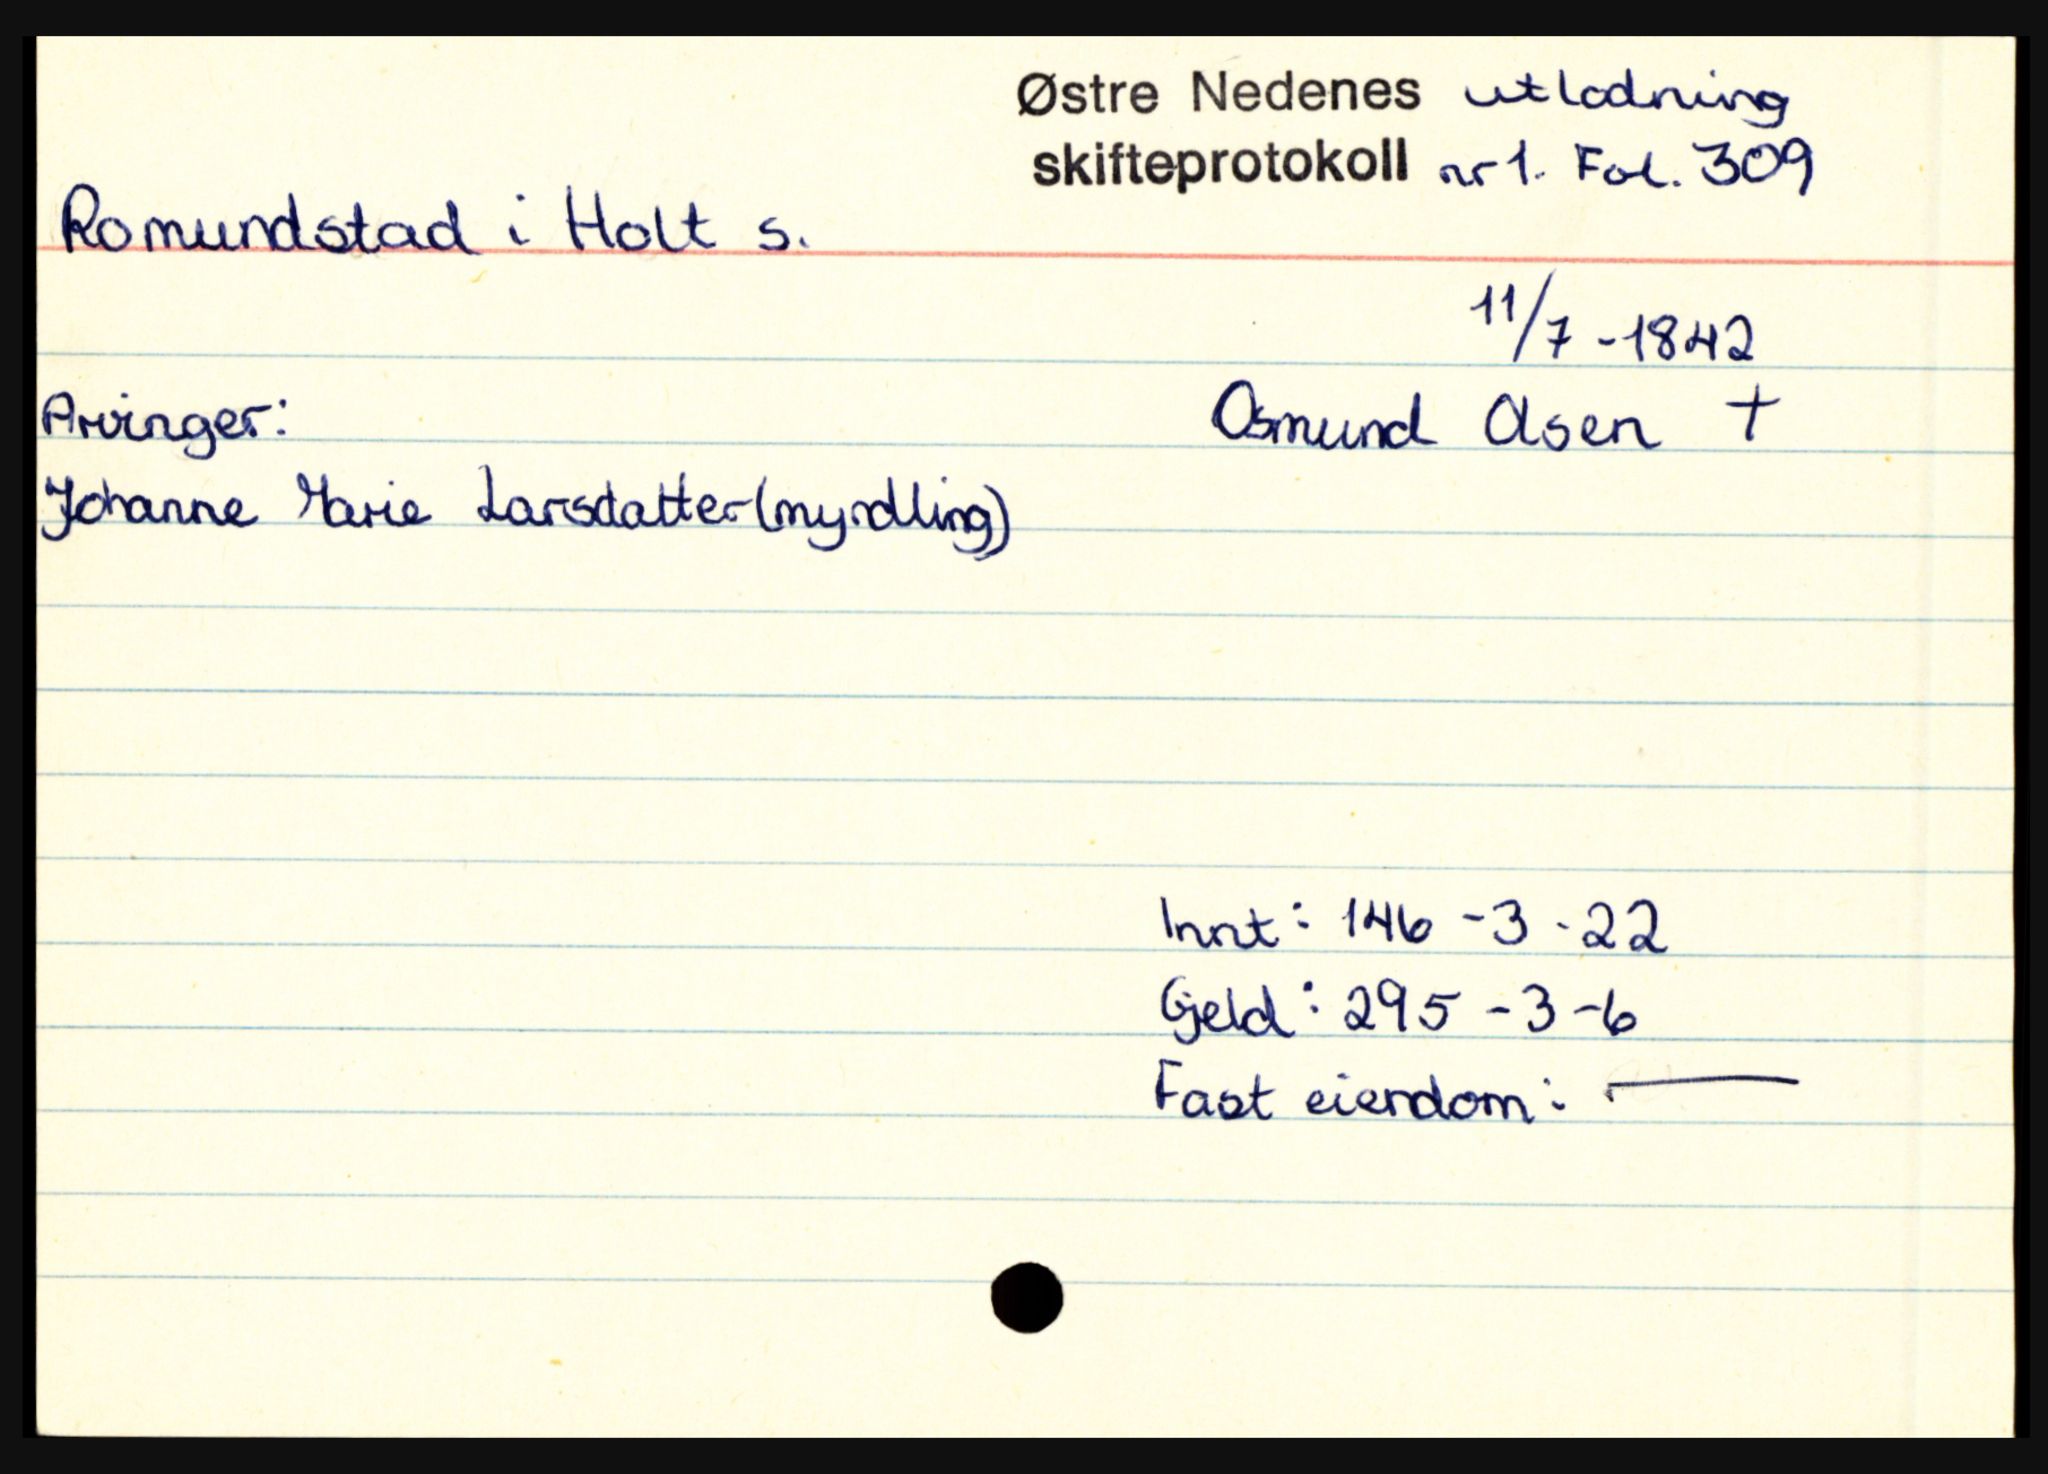 Østre Nedenes utlodning
skifteprotokoll nr 1. Fol. 309
Romundstad i Holt s.
11/7 - 1842
Arvinger:
Osmund Olsen †
Johanne Marie Larsdatter (myndling)
Innt: 146 - 3 - 22
Gjeld: 295 - 3 - 6
Fast eiendom: —